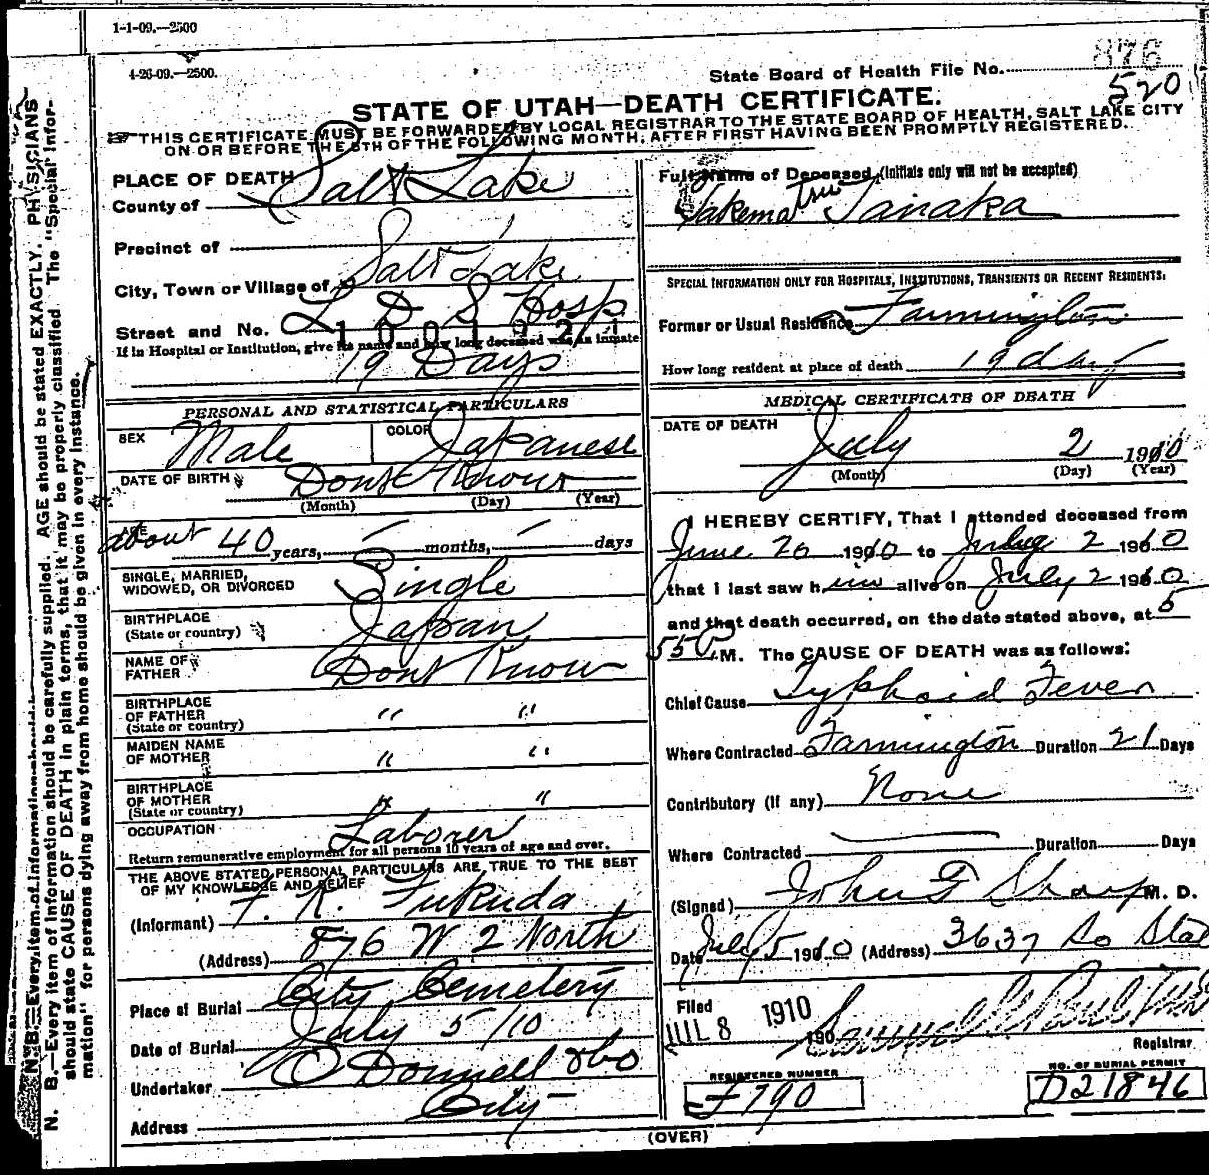 1-1-09.—2500
4-26-09.—2500.
State Board of Health File No. 876
520
STATE OF UTAH—DEATH CERTIFICATE.
THIS CERTIFICATE MUST BE FORWARDED BY LOCAL REGISTRAR TO THE STATE BOARD OF HEALTH, SALT LAKE CITY
ON OR BEFORE THE 5TH OF THE FOLLOWING MONTH, AFTER FIRST HAVING BEEN PROMPTLY REGISTERED.
PLACE OF DEATH
County of Salt Lake
Precinct of
City, Town or Village of Salt Lake
Street and No. L D S Hosp
1001921
If in Hospital or Institution, give its name and how long deceased was an inmate
19 Days
PERSONAL AND STATISTICAL PARTICULARS
SEX Male COLOR Japanese
DATE OF BIRTH Dont Know
(Month) (Day) (Year)
AGE about 40 years, — months, — days
SINGLE, MARRIED,
WIDOWED, OR DIVORCED Single
BIRTHPLACE
(State or country) Japan
NAME OF
FATHER Dont Know
BIRTHPLACE
OF FATHER
(State or country) " "
MAIDEN NAME
OF MOTHER " "
BIRTHPLACE
OF MOTHER
(State or country) " "
OCCUPATION Laborer
Return remunerative employment for all persons 10 years of age and over.
THE ABOVE STATED PERSONAL PARTICULARS ARE TRUE TO THE BEST
OF MY KNOWLEDGE AND BELIEF
(Informant) T. K. Fukuda
(Address) 876 W 2 North
Place of Burial City Cemetery
Date of Burial July 5/10
Undertaker O Donnell &Co
Address City
Full Name of Deceased (Initials only will not be accepted)
Takematsu Tanaka
SPECIAL INFORMATION ONLY FOR HOSPITALS, INSTITUTIONS, TRANSIENTS OR RECENT RESIDENTS:
Former or Usual Residence Farmington
How long resident at place of death 19 days
MEDICAL CERTIFICATE OF DEATH
DATE OF DEATH
July 2 1910
(Month) (Day) (Year)
I HEREBY CERTIFY, That I attended deceased from
June 20 1910 to July 2 1910
that I last saw him alive on July 2 1910
and that death occurred, on the date stated above, at 5
550 P.M. The CAUSE OF DEATH was as follows:
Chief Cause Typhoid Fever
Where Contracted Farmington Duration 21 Days
Contributory (If any) None
Where Contracted Duration Days
(Signed) John F Sharp M. D.
Date July 5 1910 (Address) 3637 So Stat
Filed
JUL 8 1910 190 Samuel G Paul
Registrar
REGISTERED NUMBER
F790
NO. OF BURIAL PERMIT
D21846
(OVER)
N. B.—Every item of information should be carefully supplied. AGE should be stated EXACTLY. PHYSICIANS
should state CAUSE OF DEATH in plain terms, that it may be properly classified. The "Special Infor-
mation" for persons dying away from home should be given in every instance.